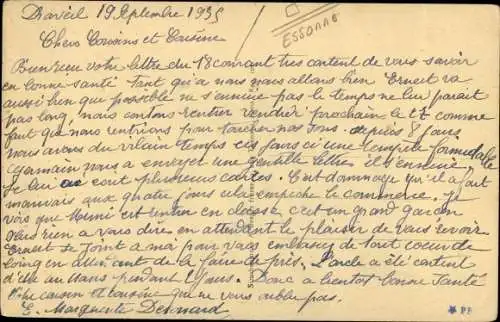 Draveil 19 Septembre 1935
ESSONNE
Chers Cousins et Cousine
Bien reçu votre lettre du 18 courant très content de vous savoir
en bonne santé tant qu'a nous nous allons bien Ernest va
aussi bien que possible ne s'ennuie pas le temps ne lui parait
pas long, nous comtons rentrer vendredi prochain le 27 comme
faut que nous rentrions pour toucher nos sous. depuis 8 jours
nous avons du vilain temps ces jours ci une tempête formidable
Germain nous a envoyer une gentille lettre il s'ennuie
je lui ai écrit plusieurs cartes C'est dommage qu'il a fait
mauvais aux quatre jours cela empêche le commerce. je
vois que Mimi est rentrer en classe, c'est un grand garçon
plus rien a vous dire en attendant le plaisir de vous revoir
Ernest se joint a moi pour vous embrasser de tout coeur de
loing en attendant de la faire de près. L'oncle a été content
d'être au Mans pendant jours. Donc a bientôt bonne santé
Votre cousin et cousine qui ne vous oublie pas.
E. Marguerite